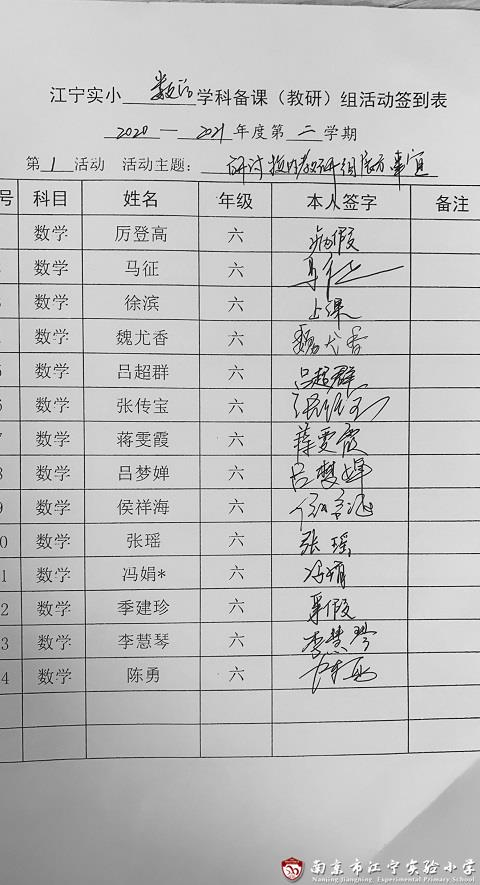 江宁实小 数六 学科备课（教研）组活动签到表
2020 — 2021 年度第 二 学期
第 1 活动 活动主题： 研讨 教研组 事宜
号 科目 姓名 年级 本人签字 备注
数学 厉登高 六 病假
数学 马征 六 马征
数学 徐滨 六 上课
数学 魏尤香 六 魏尤香
5 数学 吕超群 六 吕超群
6 数学 张传宝 六 张传宝
7 数学 蒋雯霞 六 蒋雯霞
8 数学 吕梦婵 六 吕梦婵
9 数学 侯祥海 六
0 数学 张瑶 六 张瑶
1 数学 冯娟* 六 冯娟
2 数学 季建珍 六 事假
3 数学 李慧琴 六 李慧琴
4 数学 陈勇 六
南京市江宁实验小学
Nanjing Jiangning Experimental Primary School